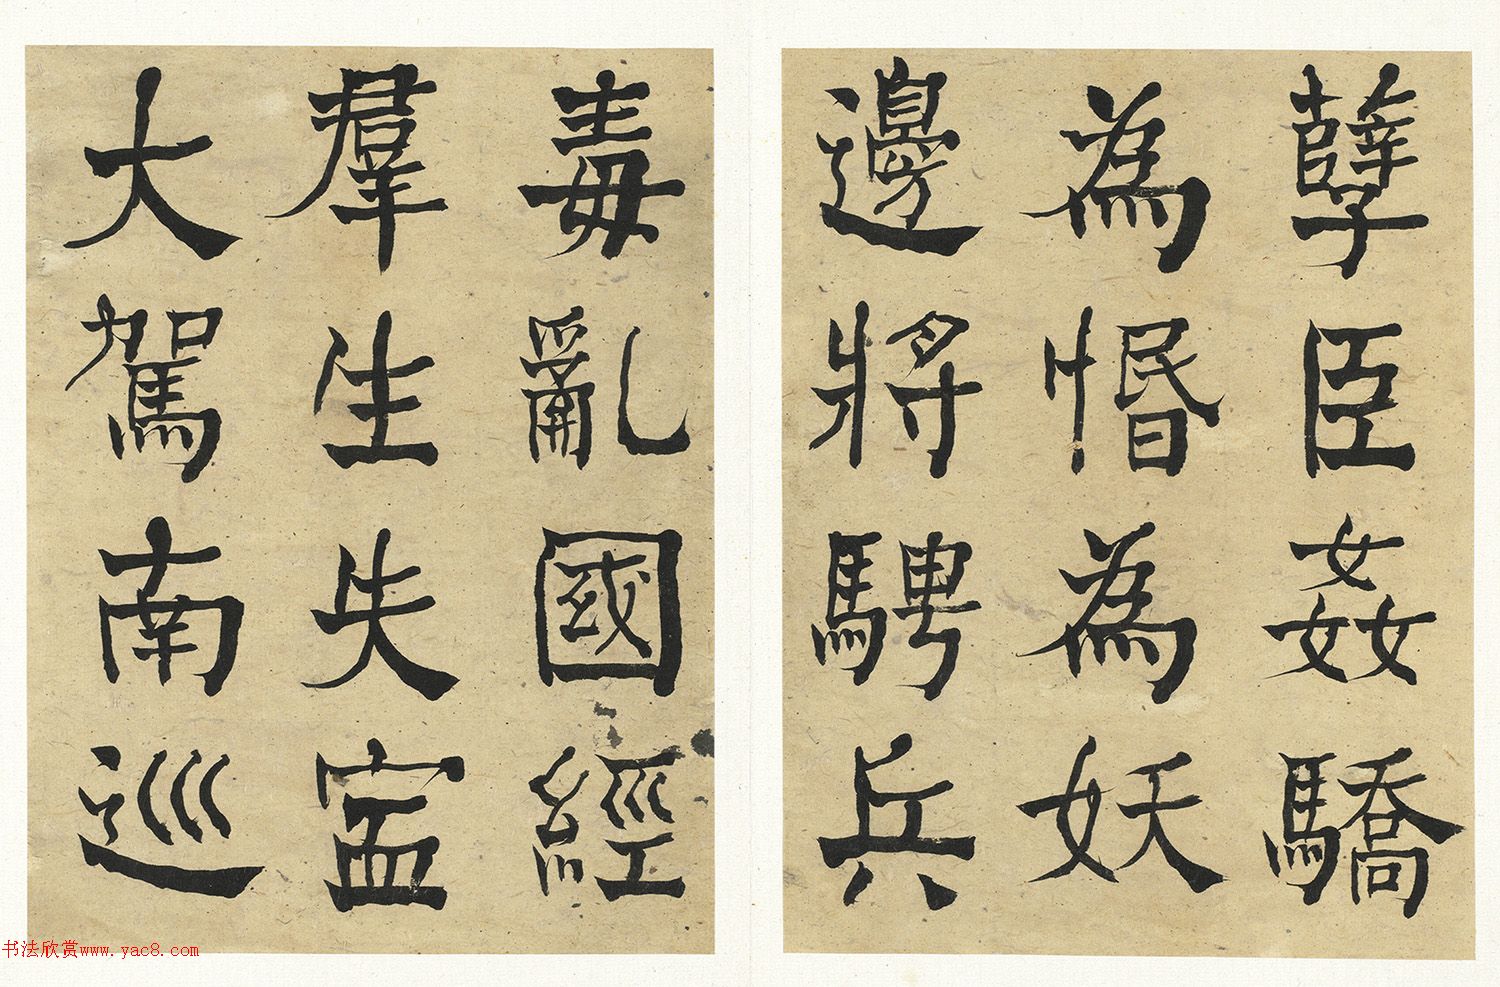 孽臣姦驕
為惛為妖
邊將騁兵
毒亂國經
羣生失寍
大駕南巡
书法欣赏www.yac8.com